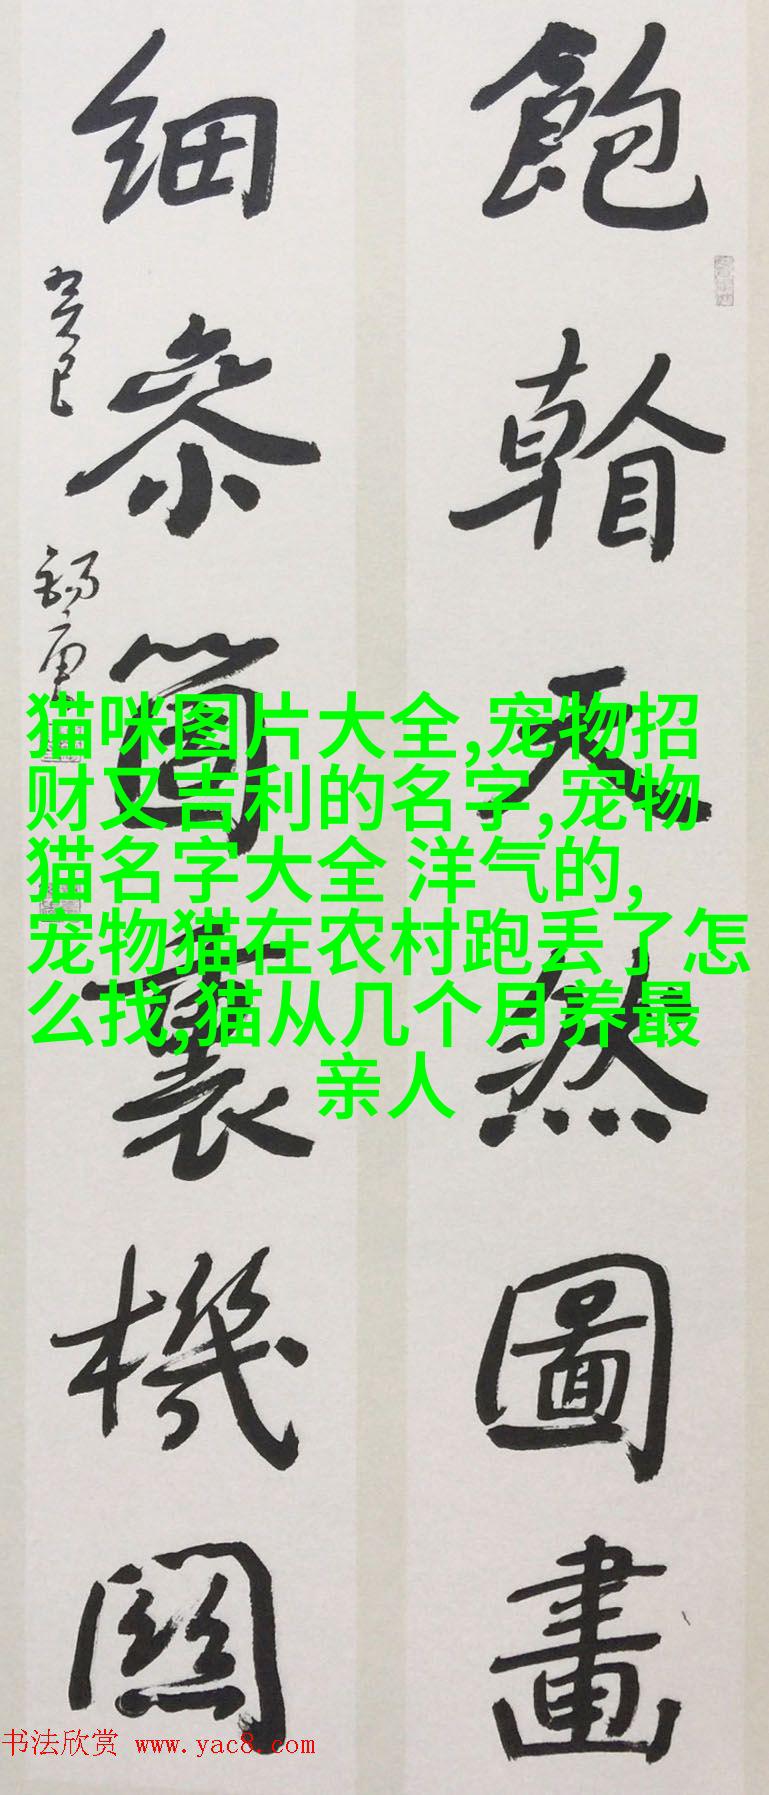 飽看天然圖畫
細參箇裏機關
癸巳
猫咪图片大全,宠物招
财又吉利的名字,宠物
猫名字大全 洋气的,
宠物猫在农村跑丢了怎
么找,猫从几个月养最
亲人
书法欣赏 www.yac8.com